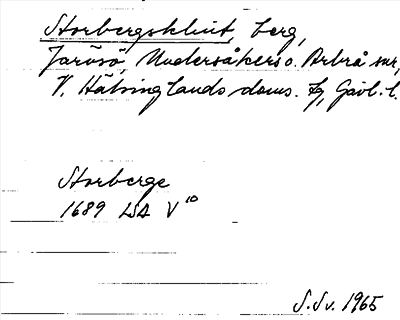 Storbergsklint, berg,
Järvsö, Undersåkers o. Arbrå snr,
V. Hälsinglands doms. fg, Gävl. l.
Storberge
1689 LSA V¹⁰
S. Sv. 1965